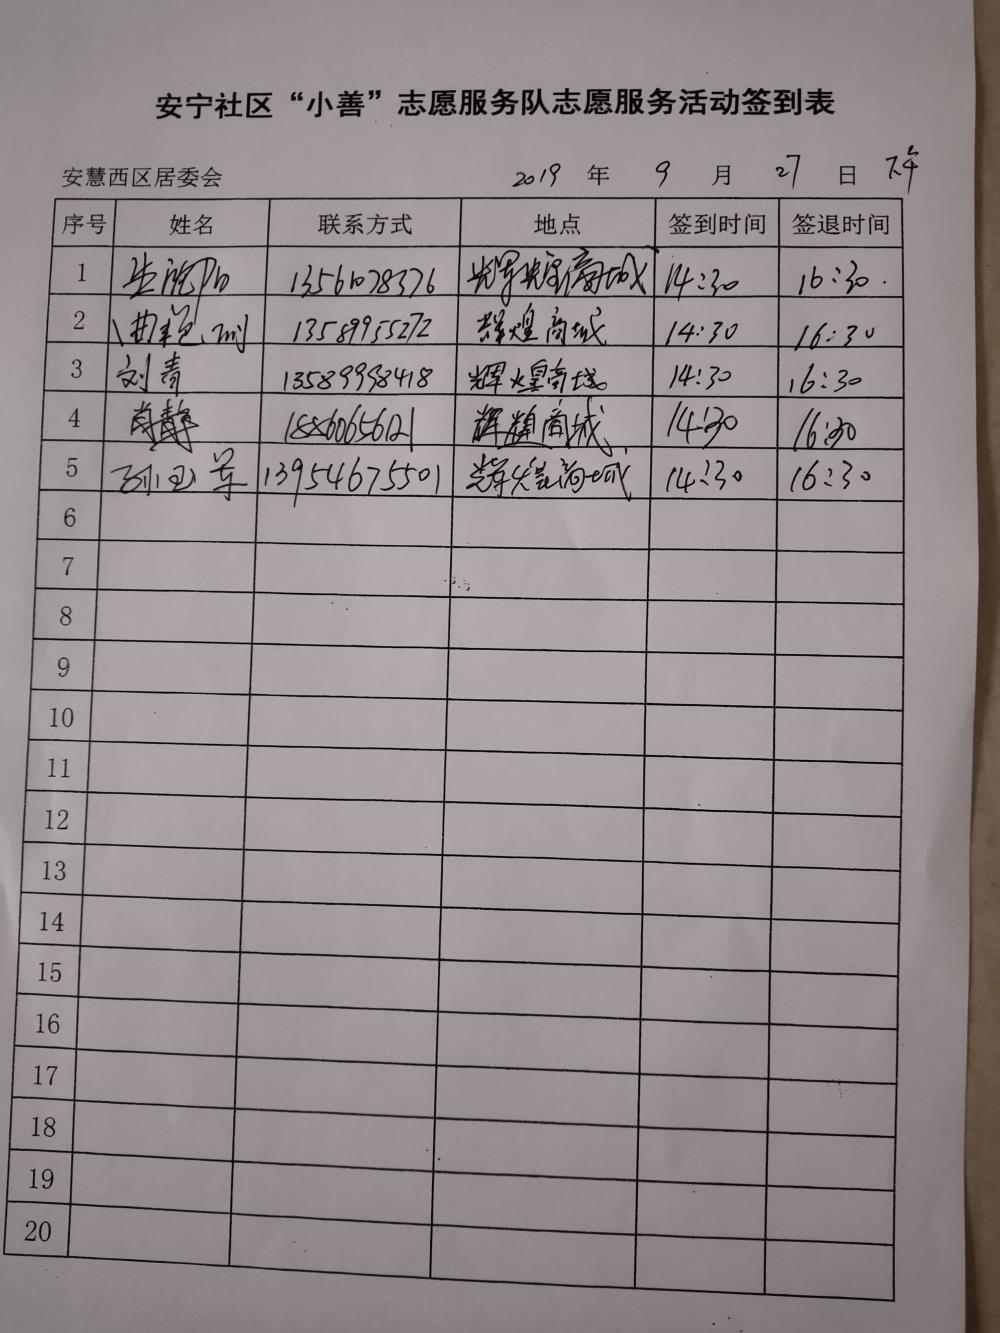 安宁社区“小善”志愿服务队志愿服务活动签到表
安慧西区居委会 2019 年 9 月 27 日 下午
序号 姓名 联系方式 地点 签到时间 签退时间
1 13561078376 辉煌商城 14:30 16:30.
2 13589955272 辉煌商城 14:30 16:30
3 刘青 13589998418 辉煌商城 14:30 16:30
4 肖静 18860656121 商城 14:30 16:30
5 孙玉军 13954675501 辉煌商城 14:30 16:30
6
7
8
9
10
11
12
13
14
15
16
17
18
19
20